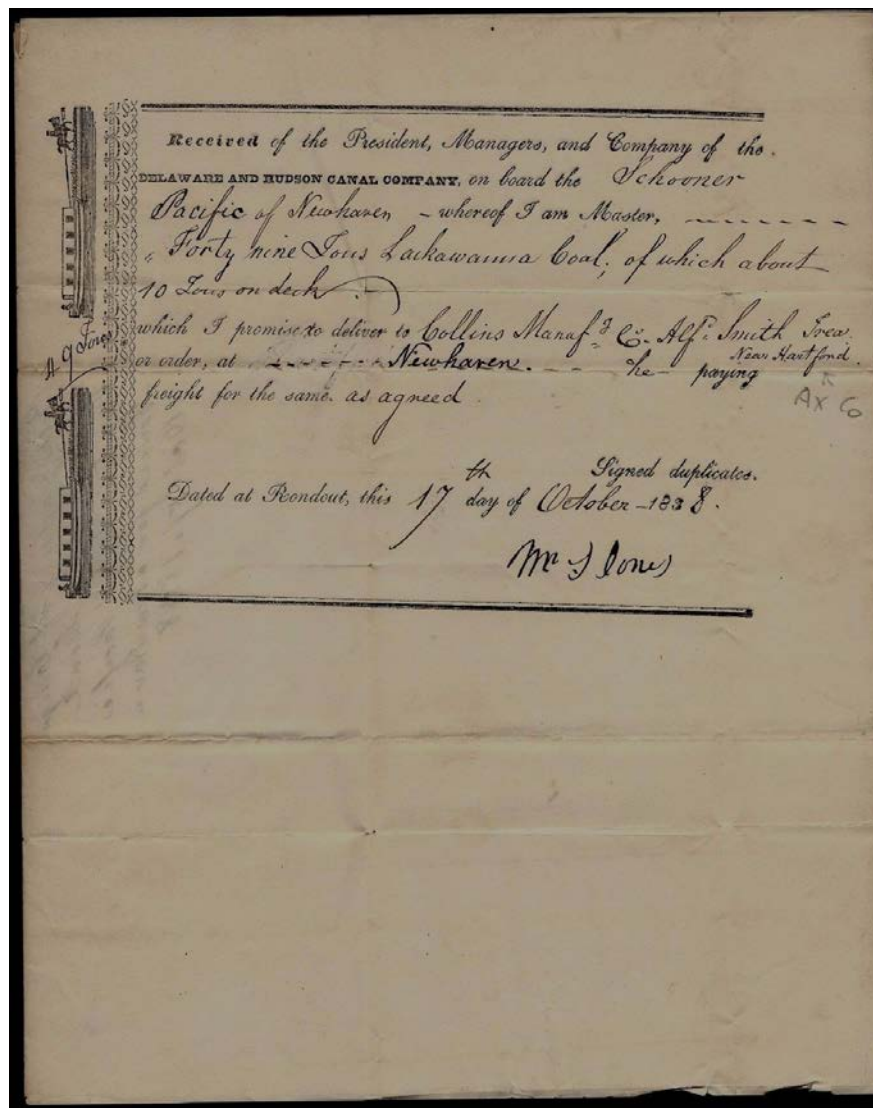 Received of the President, Managers, and Company of the
DELAWARE AND HUDSON CANAL COMPANY, on board the Schooner
Pacific of Newhaven - whereof I am Master,
" Forty nine Tons Lackawanna Coal, of which about
10 Tons on deck
which I promise to deliver to Collins Manufg Co. Alfd. Smith Trea.
or order, at Newhaven. he paying New Hartford.
freight for the same. as agreed.
Ax Co
49 Tons
Signed duplicates.
Dated at Rondout, this 17th day of October - 1838.
Jones